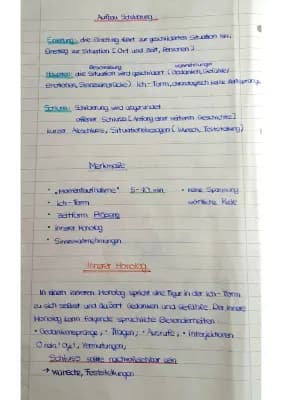 Aufbau Schilderung
Einleitung: die Einleitung führt zur geschilderten Situation hin,
Einstieg zur Situation (Ort und Zeit, Personen)
Beschreibung Wahrnehmungen
Hauptteil: die Situation wird geschildert (Gedanken, Gefühle/
Emotionen, Sinneseindrücke) Ich-Form, chronologisch keine Zeitsprünge
Schluss: Schilderung wird abgerundet
offener Schluss (Anfang einer weiteren Geschichte)
kurzer Abschluss, Situationsbezogen (Wunsch, Feststellung)
Merkmale
• "Momentaufnahme" 5-10 min. • keine Spannung
• Ich-Form wörtliche Rede
• Zeitform Präsens
• innerer Monolog
• Sinneswahrnehmungen
Innerer Monolog
In einem inneren Monolog spricht eine Figur in der Ich-Form
zu sich selbst und äußert Gedanken und Gefühle. Der innere
Monolog kann folgende sprachliche Besonderheiten:
• Gedankensprünge, • Fragen, • Ausrufe, • Interjektionen
O nein! Oje!, Vermutungen,
Schluss sollte nachvollziehbar sein
→ Wünsche, Feststellungen